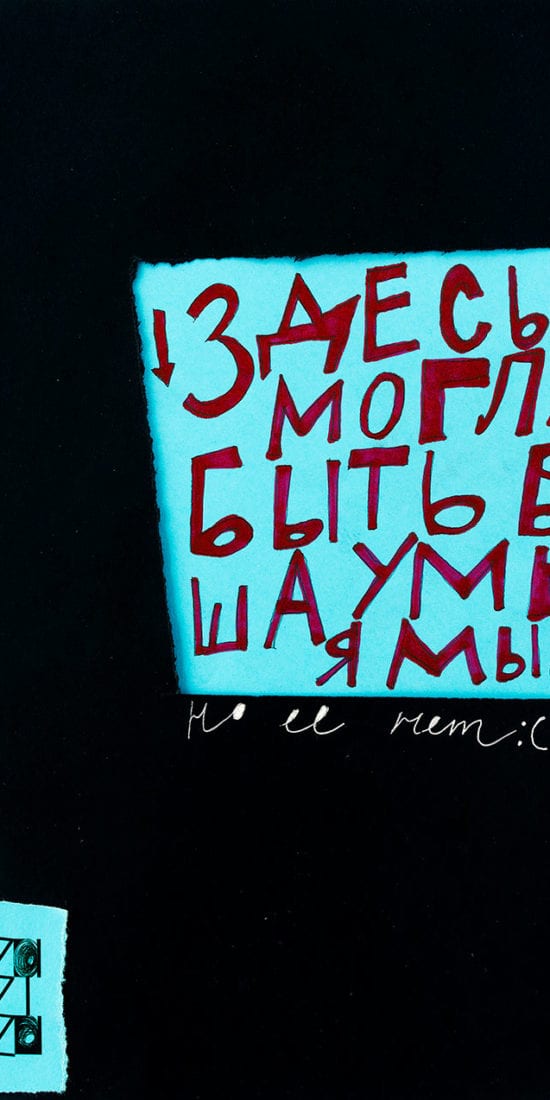 ЗДЕСЬ
МОГЛА
БЫТЬ В
ША УМН
Я МЫ
но ее нет:(